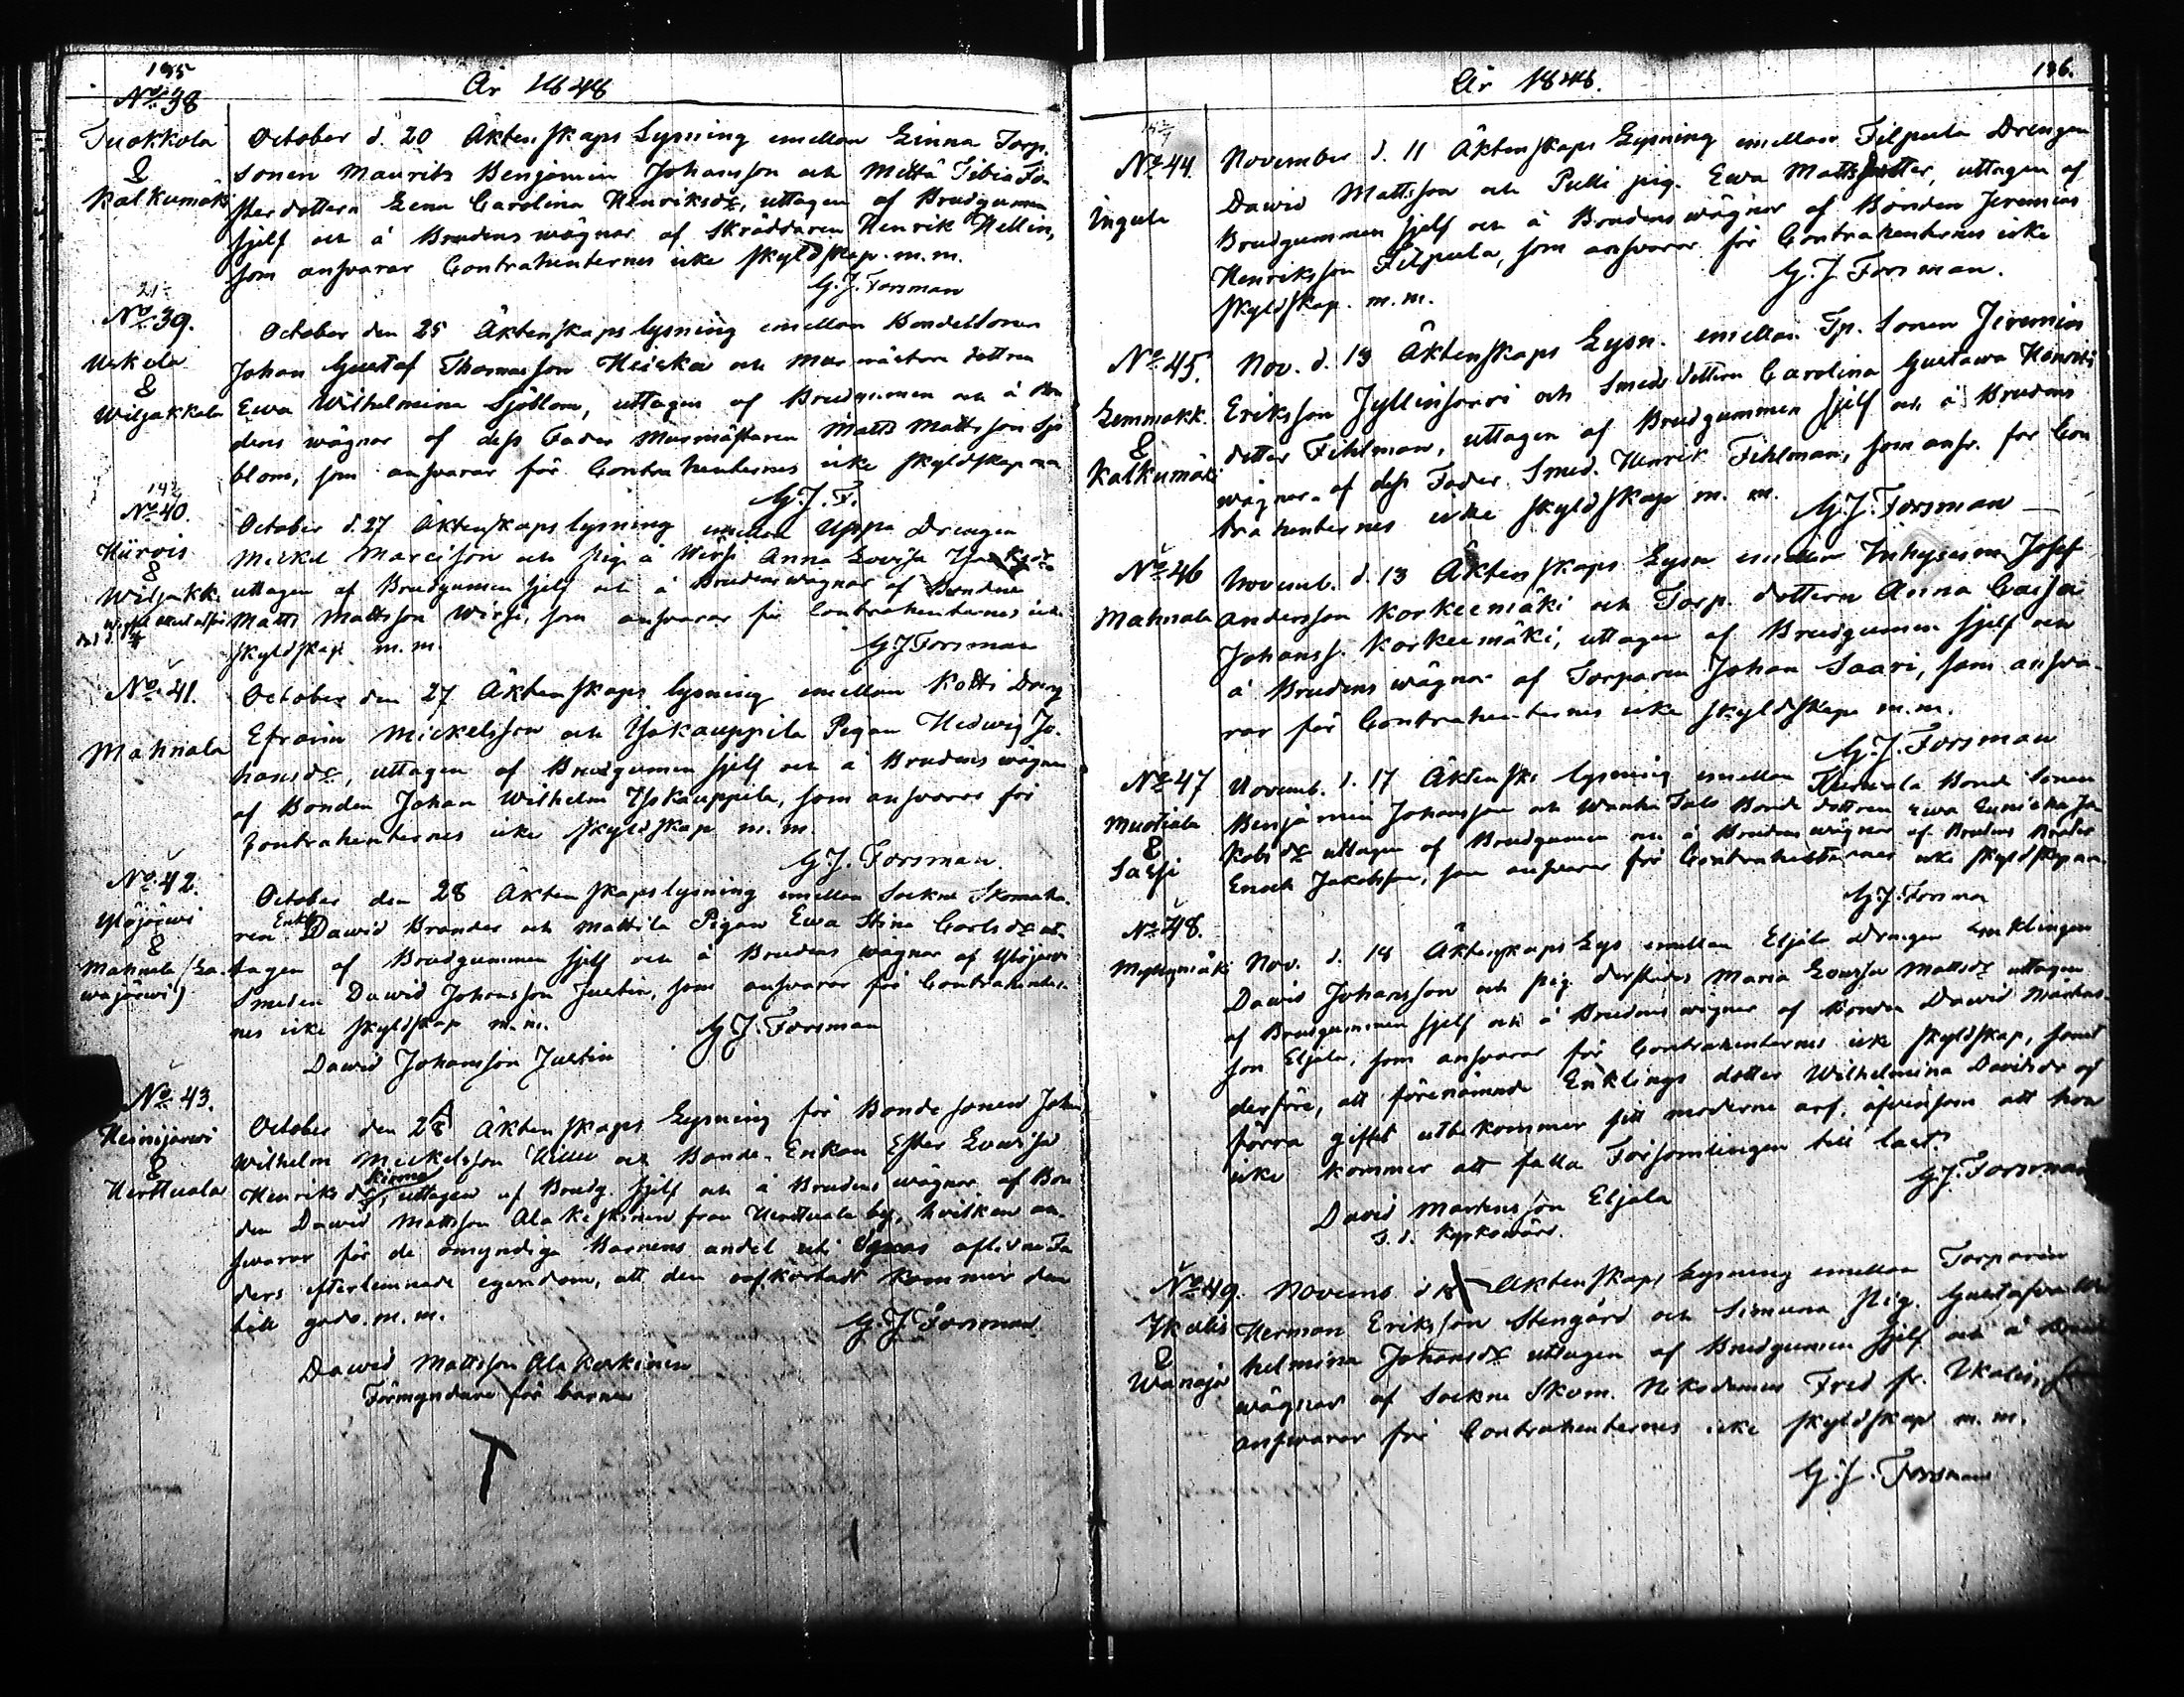 195
År 1848
No 38
Tuokkola
&
Kalkumäki
October d. 20 Äktenskaps Lysning emellan Linna Torp.
sonen Maurits Benjamin Johansson och Mettä Tibia Fo-
sterdottern Lena Carolina Henriksdr, uttagen af Brudgumen
sjelf och å Brudens wägnar af Skräddaren Henrik Hellin,
som ansvarar Contrahenternes icke skyldskap. m.m.
G. J. Forsman
No 39.
Uskela
&
Wiljakkala
October den 25 Äktenskaps lysning emellan Bondesonen
Johan Gustaf Thomasson Heiska och Murmästare dottren
Ewa Wilhelmina Sjöblom, uttagen af Brudgumen och å Bru
dens wägnar af dess Fader Murmästaren Matts Mattsson Sjö
blom, som ansvarar för Contrahenternes icke skyldskap m
G. J. F.
No 40.
&
Wiljakk.
October d. 27 Äktenskaps lysning emellan Uppa Drengen
Mickel Marcisson och pig. å Wirsi Anna Lovisa
uttagen af Brudgumen sjelf och å Brudens wägnar af Bonden
Matts Mattsson Wirsi, som ansvarar för Contrahenternes icke
skyldskap m. m.
G. J. Forsman
No 41.
Mahnala
October den 27 Äktenskaps lysning emellan Kotti Dreng
Efraim Mickelsson och Ysikauppila Pigan Hedwig Jo-
hansdr, uttagen af Brudgumen sjelf och å Brudens wägnar
af Bonden Johan Wilhelm Yskauppila, som ansvarar för
Contrahenternes icke skyldskap m. m.
G. J. Forsman
No 42.
Ylöjärwi
&
Mahnala (La-
wajärwi)
October den 28 Äktenskapslysning emellan Sockne Skomaka-
ren Enkl. Dawid Brander och Mattila Pigan Ewa Stina Carlsdr ut-
tagen af Brudgummen sjelf och å Brudens wägnar af Ylöjärwi
Smeden Dawid Johansson Justin, som ansvarar för Contrahenter-
nes icke skyldskap m. m.
G. J. Forsman
Dawid Johansson Justin
No 43.
Heinijärwi
&
Herttuala
October den 28 Äktenskaps Lysning för Bonde sonen Johan
Wilhelm Mickelsson och Bonde-Enkan Ester Lowisa
Henriksdr, uttagen af Brudg. sjelf och å Brudens wägnar af Bon
den Dawid Mattsson Ala Keskinen från Herttuala by, hvilken an-
swarar för de omyndiga Barnens andel uti aflidne Fa
ders efterlemnade egendom, att den oafkortadt kommer dem
till godo. m. m.
G. J. Forsman
Dawid Mattsson Ala Keskinen
Förmyndare för barnen
186.
År 1848.
No 44.
Ingula
November d. 11 Äktenskaps Lysning emellan Filpula Drengen
Dawid Mattsson och Pulli pig. Ewa Mattsdotter, uttagen af
Brudgummen sjelf och å Brudens wägnar af Bonden Jeremias
Henriksson Filpula, som ansvarar för Contrahenternes icke
skyldskap. m. m.
G. J. Forsman.
No 45.
Lemmakk.
&
Kalkumäki
Nov. d. 13 Äktenskaps Lysn. emellan Tp. Sonen Jeremias
Eriksson Jyllinsarri och Smeds dottern Carolina Gustawa Henriks
dotter Fihlman, uttagen af Brudgummen sjelf och å Brudens
wägnar af dess Fader Smed. Henrik Fihlman, som ansv. för Con
trahenternes icke skyldskap m. m.
G. J. Forsman
No 46
Mahnala
Novemb. d. 13 Äktenskaps Lysn emellan Inhysesm. Josef
Andersson Korkeemäki och Torp. dottern Anna Caisa
Johanss. Korkeemäki, uttagen af Brudgumen sjelf och
å Brudens wägnar af Torparen Johan Saari, som answa-
rar för Contrahenternes icke skyldskap m. m.
G. J. Forsman
No 47
Muotiala
&
Sasi
Novemb. d. 17 Äktensk. lysning emellan Bonde Sonen
Benjamin Johansson och Wanha Talo Bonde dottren Ewa Ja-
kobsdr uttagen af Brudgumen och å Brudens wägnar af Brudens Broder
Enoch Jakobsson, som ansvarar för Contrahenternes icke skyldskap m.
G. J. Forsman
No 48.
Myllymäki
Nov. d. 18 Äktenskaps Lys emellan Eljala Drengen Enklingen
Dawid Johansson och pig. derstädes Maria Lowisa Mattsdr uttagen
af Brudgummen sjelf och å Brudens wägnar af Bonden Dawid Mårtens-
son Eljala, som ansvarar för Contrahenternes icke skyldskap, samt
derföre, att förenämnde Enklings dotter Wilhelmina Davidsdr af
förra giftet utbekommer sitt möderne arf, äfvensom att hon
icke kommer att falla Församlingen till last.
G. J. Forsman
David Mårtensson Eljala
s. d. kyrkowärd.
No 49.
Ikalis
&
Wanaja
Novemb. d 18 Äktenskaps Lysning emellan Torparen
Herman Eriksson Stengård och Simuna Pig. Gustafva Wil
helmina Johansdr uttagen af Brudgumen sjelf och å Brudens
wägnar af Sockne Skom. Nikodemus Fred fr. Ikalis, som
answarar för Contrahenternes icke skyldskap m. m.
G. J. Forsman